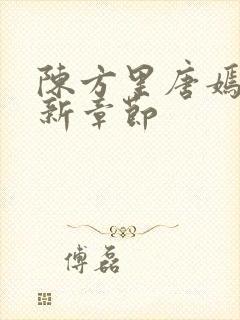 陳方里唐嫣
新章節
傅磊